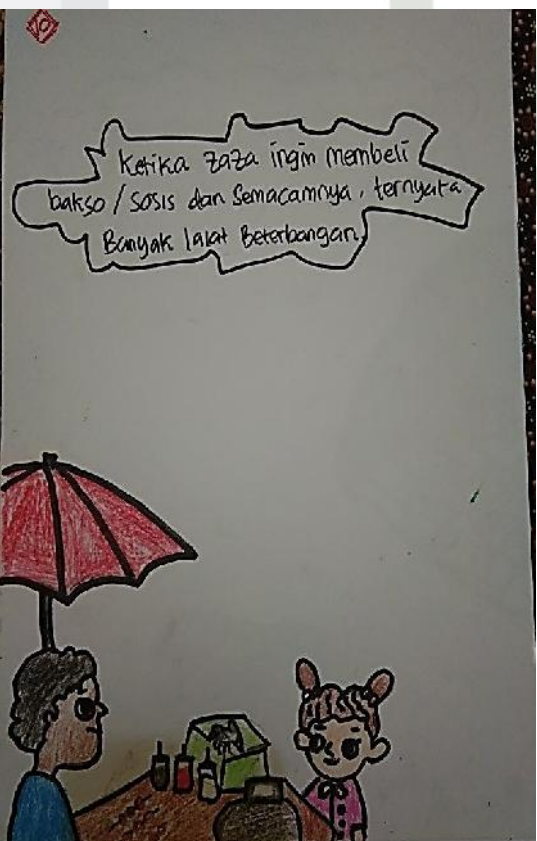 10
Ketika zaza ingin membeli
bakso / sosis dan Semacamnya, ternyata
Banyak lalat Beterbangan